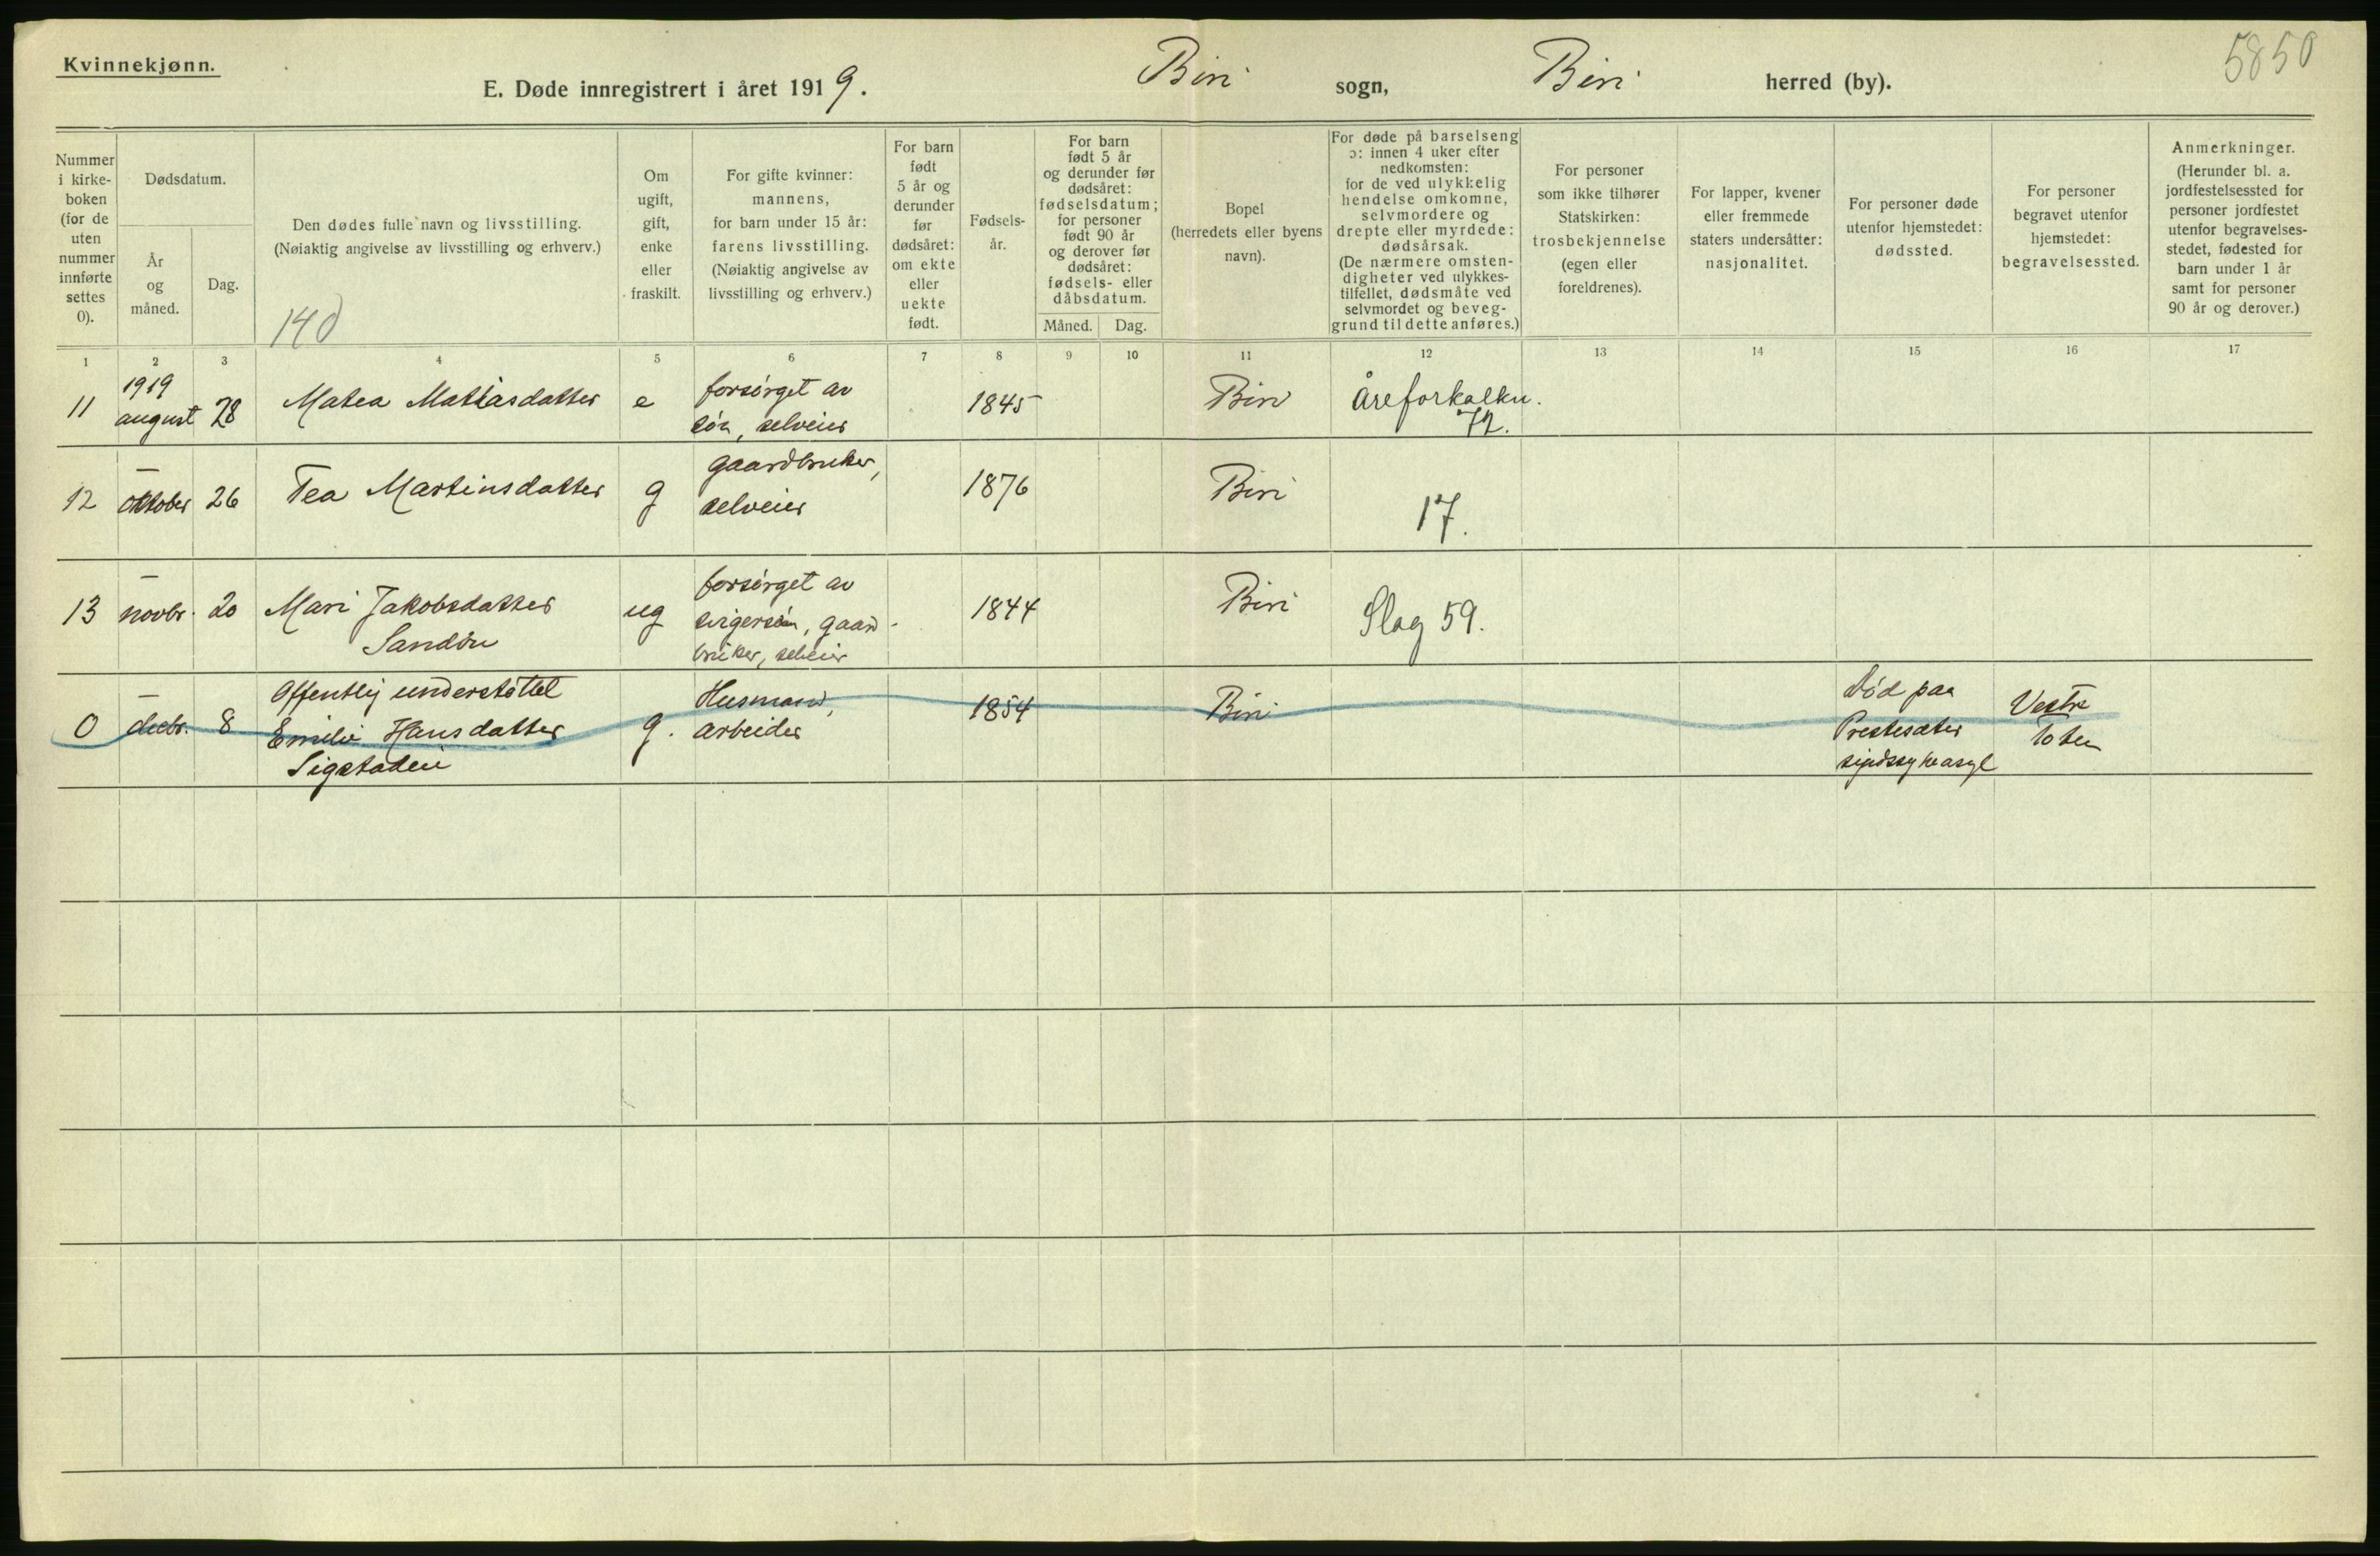 Kvinnekjønn.
5850
E. Døde innregistrert i året 1919. Biri sogn, Biri herred (by).
Nummer
i kirke-
boken
(for de
uten
nummer
innførte
settes
0).
Dødsdatum.
År
og
måned.
Dag.
Den dødes fulle navn og livsstilling.
(Nøiaktig angivelse av livsstilling og erhverv.)
140
Om
ugift,
gift,
enke
eller
fraskilt.
For gifte kvinner:
mannens,
for barn under 15 år:
farens livsstilling.
(Nøiaktig angivelse av
livsstilling og erhverv.)
For barn
født
5 år og
derunder
før
dødsåret:
om ekte
eller
uekte
født.
Fødsels-
år.
For barn
født 5 år
og derunder før
dødsåret:
fødselsdatum;
for personer
født 90 år
og derover før
dødsåret:
fødsels- eller
dåbsdatum.
Måned. Dag.
Bopel
(herredets eller byens
navn).
For døde på barselseng
ɔ: innen 4 uker efter
nedkomsten:
for de ved ulykkelig
hendelse omkomne,
selvmordere og
drepte eller myrdede:
dødsårsak.
(De nærmere omsten-
digheter ved ulykkes-
tilfellet, dødsmåte ved
selvmordet og beveg-
grund til dette anføres.)
For personer
som ikke tilhører
Statskirken:
trosbekjennelse
(egen eller
foreldrenes).
For lapper, kvener
eller fremmede
staters undersåtter:
nasjonalitet.
For personer døde
utenfor hjemstedet:
dødssted.
For personer
begravet utenfor
hjemstedet:
begravelsessted.
Anmerkninger.
(Herunder bl. a.
jordfestelsessted for
personer jordfestet
utenfor begravelses-
stedet, fødested for
barn under 1 år
samt for personer
90 år og derover.)
1 2 3 4 5 6 7 8 9 10 11 12 13 14 15 16 17
1919 forsørget av
11 august 28 Matea Matiasdatter e søn, selveier 1845 Biri Åreforkalkn.
72.
— gaardbruker,
12 oktober 26 Tea Martinsdatter g selveier 1876 Biri 17.
— forsørget av
13 novbr. 20 Mari Jakobsdatter ug svigersøn, gaard- 1844 Biri Slag 59.
Sandøn bruker, selveier
— Offentlig understøttet Husmand, Død paa Vestre
0 decbr. 8 Emilie Hansdatter g. arbeider 1854 Biri Prestesæter Toten
Sigstadeie sindssykeasyl